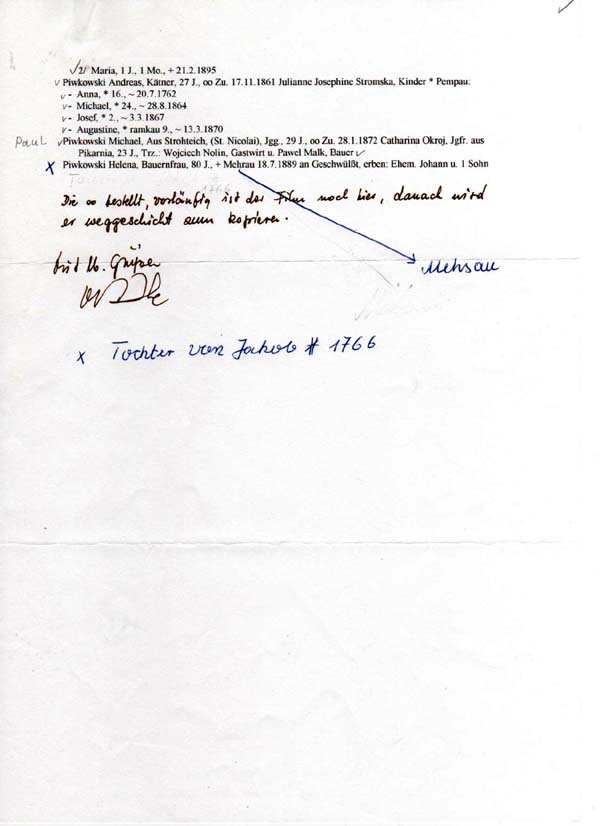 2/ Maria, 1 J., 1 Mo., + 21.2.1895
Piwkowski Andreas, Kätner, 27 J., oo Zu. 17.11.1861 Julianne Josephine Stromska, Kinder * Pempau:
- Anna, * 16., ~ 20.7.1762
- Michael, * 24., ~ 28.8.1864
- Josef, * 2., ~ 3.3.1867
- Augustine, * ramkau 9., ~ 13.3.1870
Paul Piwkowski Michael, Aus Strohteich, (St. Nicolai), Jgg., 29 J., oo Zu. 28.1.1872 Catharina Okroj, Jgfr. aus
Pikarnia, 23 J., Trz.: Wojciech Nolin, Gastwirt u. Pawel Malk, Bauer
x Piwkowski Helena, Bauernfrau, 80 J., + Mehrau 18.7.1889 an Geschwülßt, erben: Ehem. Johann u. 1 Sohn
1766
Die oo bestellt, vorläufig ist der Film noch hier, danach wird
er weggeschickt zum kopieren.
Mit lb. Grüßen
Mehsau
x Tochter von Jakob # 1766